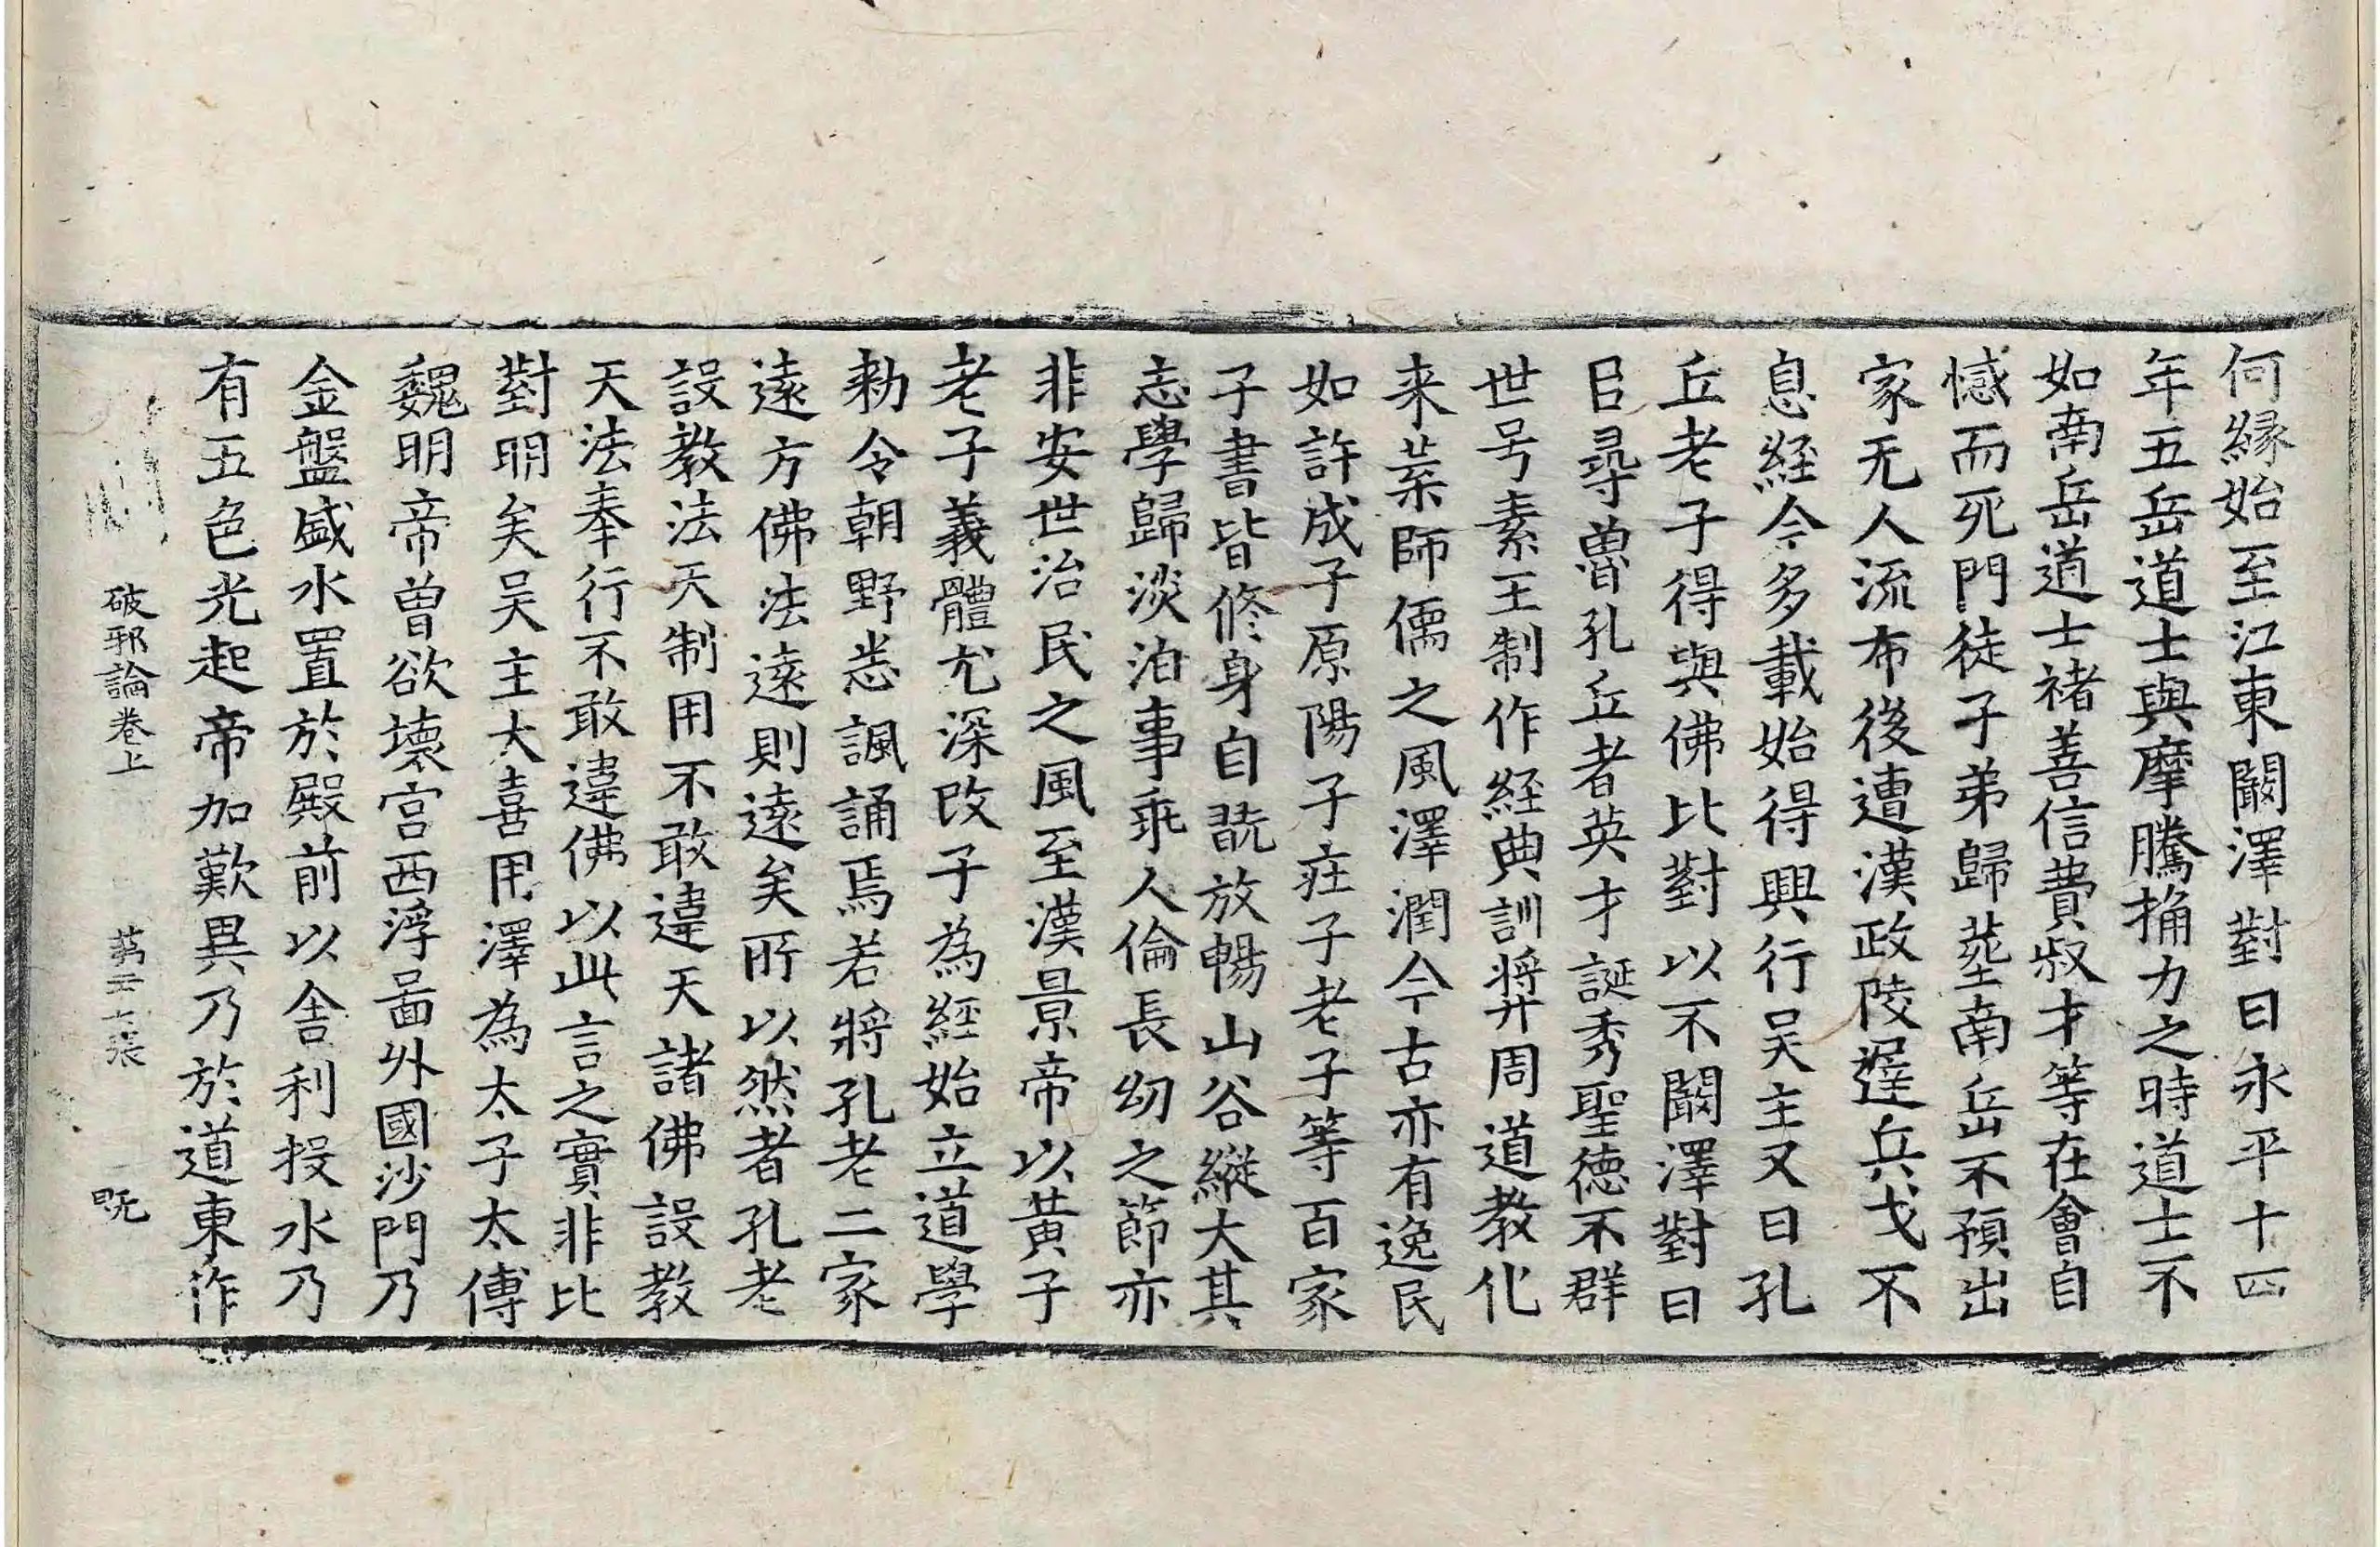 何緣始至江東闞澤對曰永平十四
年五岳道士與摩騰捔力之時道士不
如南岳道士褚善信費叔才等在會自
憾而死門徒子弟歸塟南岳不預出
家无人流布後遭漢政陵遅兵戈不
息経今多載始得興行吴主又曰孔
丘老子得與佛比對以不闞澤對曰
臣尋魯孔丘者英才誕秀聖德不群
世号素王制作経典訓奬周道教化
来葉師儒之風澤潤今古亦有逸民
如許成子原陽子疘子老子等百家
子書皆修身自翫放暢山谷縱大其
志學歸淡泊事乖人倫長幼之節亦
非安世治民之風至漢景帝以黄子
老子義體尤深改子為経始立道學
勑令朝野悉諷誦焉若將孔老二家
遠方佛法遠則遠矣所以然者孔老
設教法天制用不敢違天諸佛設教
天法奉行不敢違佛以此言之實非比
對明矣吴主大喜用澤為太子太傅
魏明帝曾欲壞宫西浮啚外國沙門乃
金盤盛水置於殿前以舎利投水乃
有五色光起帝加歎異乃於道東作
破邪論卷上 苐二十張 旣